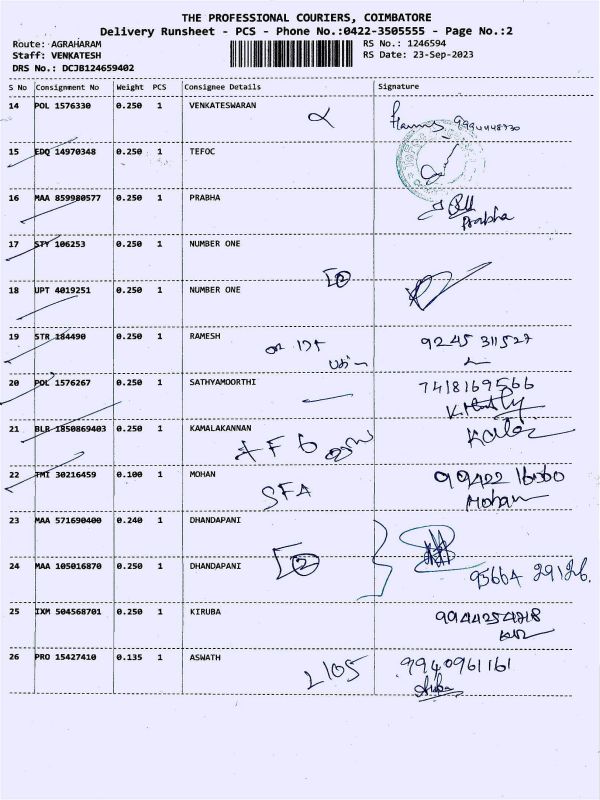 THE PROFESSIONAL COURIERS, COIMBATORE
Delivery Runsheet - PCS - Phone No.:0422-3505555 - Page No.:2
Route: AGRAHARAM RS No.: 1246594
Staff: VENKATESH RS Date: 23-Sep-2023
DRS No.: DCJB124659402
S No Consignment No Weight PCS Consignee Details Signature
14 POL 1576330 0.250 1 VENKATESWARAN
15 EDQ 14970348 0.250 1 TEFOC
16 MAA 859980577 0.250 1 PRABHA
Prabha
17 STY 106253 0.250 1 NUMBER ONE
2
18 UPT 4019251 0.250 1 NUMBER ONE
19 STR 184490 0.250 1 RAMESH 9245 311527
20 POL 1576267 0.250 1 SATHYAMOORTHI 7418169566
21 BLR 1850869403 0.250 1 KAMALAKANNAN
22 TMI 30216459 0.100 1 MOHAN 99422 16060
SFA Mohan
23 MAA 571690400 0.240 1 DHANDAPANI
24 MAA 105016870 0.250 1 DHANDAPANI 2
95664 29126.
25 IXM 504568701 0.250 1 KIRUBA 9944254718
26 PRO 15427410 0.135 1 ASWATH 9940961161